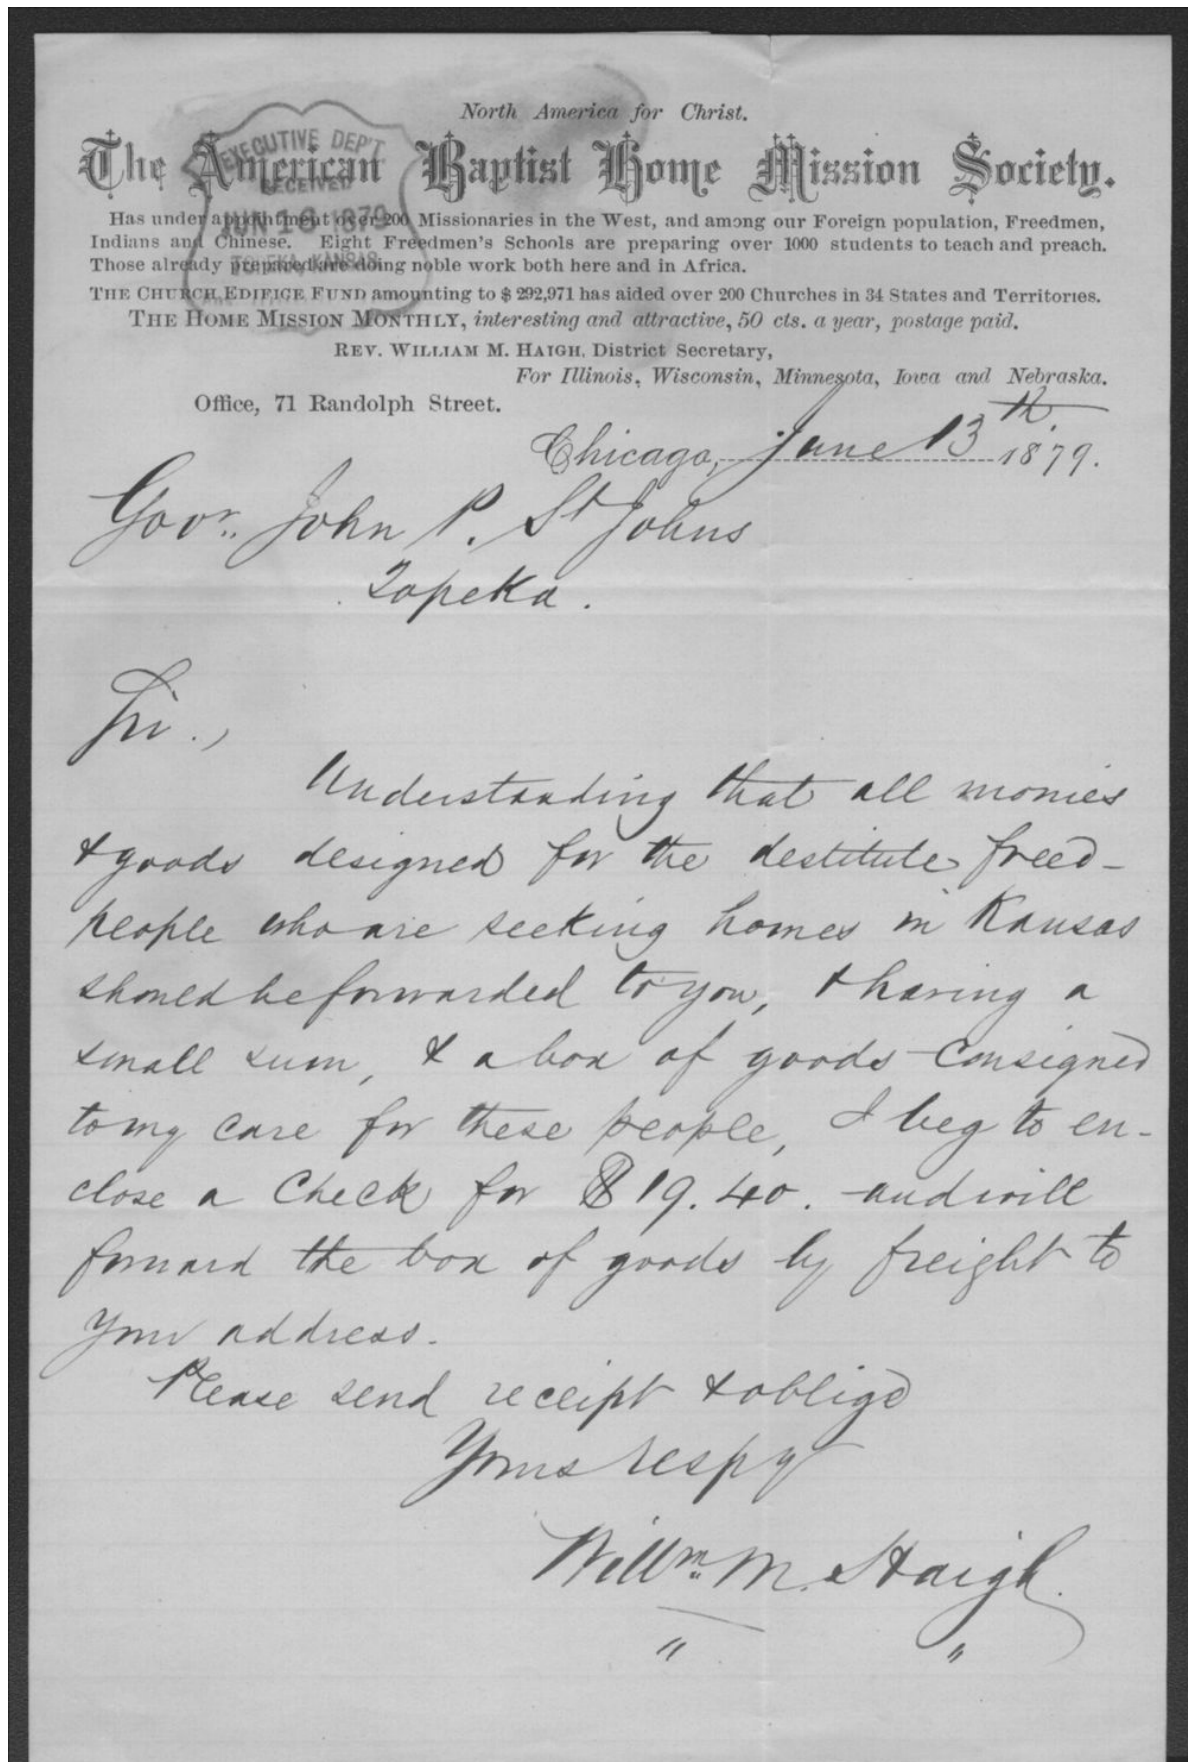 North America for Christ.
The American Baptist Home Mission Society.
EXECUTIVE DEP'T
RECEIVED
JUN 16 1879
TOPEKA, KANSAS
Has under appointment over 200 Missionaries in the West, and among our Foreign population, Freedmen,
Indians and Chinese. Eight Freedmen's Schools are preparing over 1000 students to teach and preach.
Those already prepared are doing noble work both here and in Africa.
THE CHURCH EDIFICE FUND amounting to $ 292,971 has aided over 200 Churches in 34 States and Territories.
THE HOME MISSION MONTHLY, interesting and attractive, 50 cts. a year, postage paid.
REV. WILLIAM M. HAIGH, District Secretary,
For Illinois, Wisconsin, Minnesota, Iowa and Nebraska.
Office, 71 Randolph Street.
Chicago, June 13th 1879.
Govr. John P. St Johns
Topeka.
Sir.,
Understanding that all monies
& goods designed for the destitute freed-
people who are seeking homes in Kansas
should be forwarded to you, & having a
small sum, & a box of goods consigned
to my care for these people, I beg to en-
close a Check for $19.40. and will
forward the box of goods by freight to
your address.
Please send receipt & oblige
Yours respy
Willm. M. Haigh.
" "